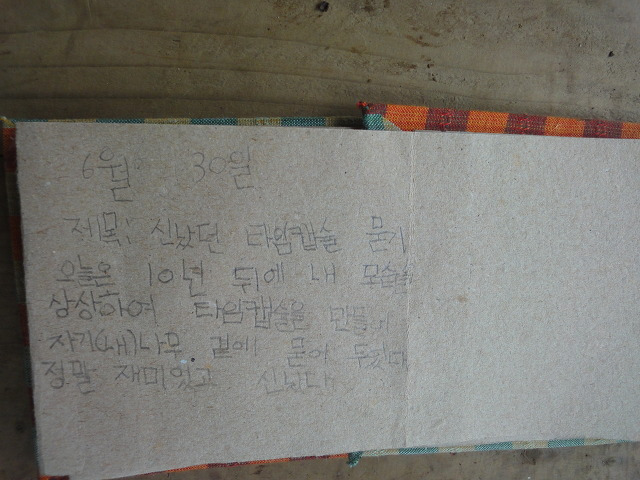 6월 30일
제목: 신났던 타임캡슐 묻기
오늘은 10년 뒤에 내 모습을
상상하여 타임캡슐을 만들어
자기(내)나무 곁에 묻어 두었다
정말 재미있고 신났다